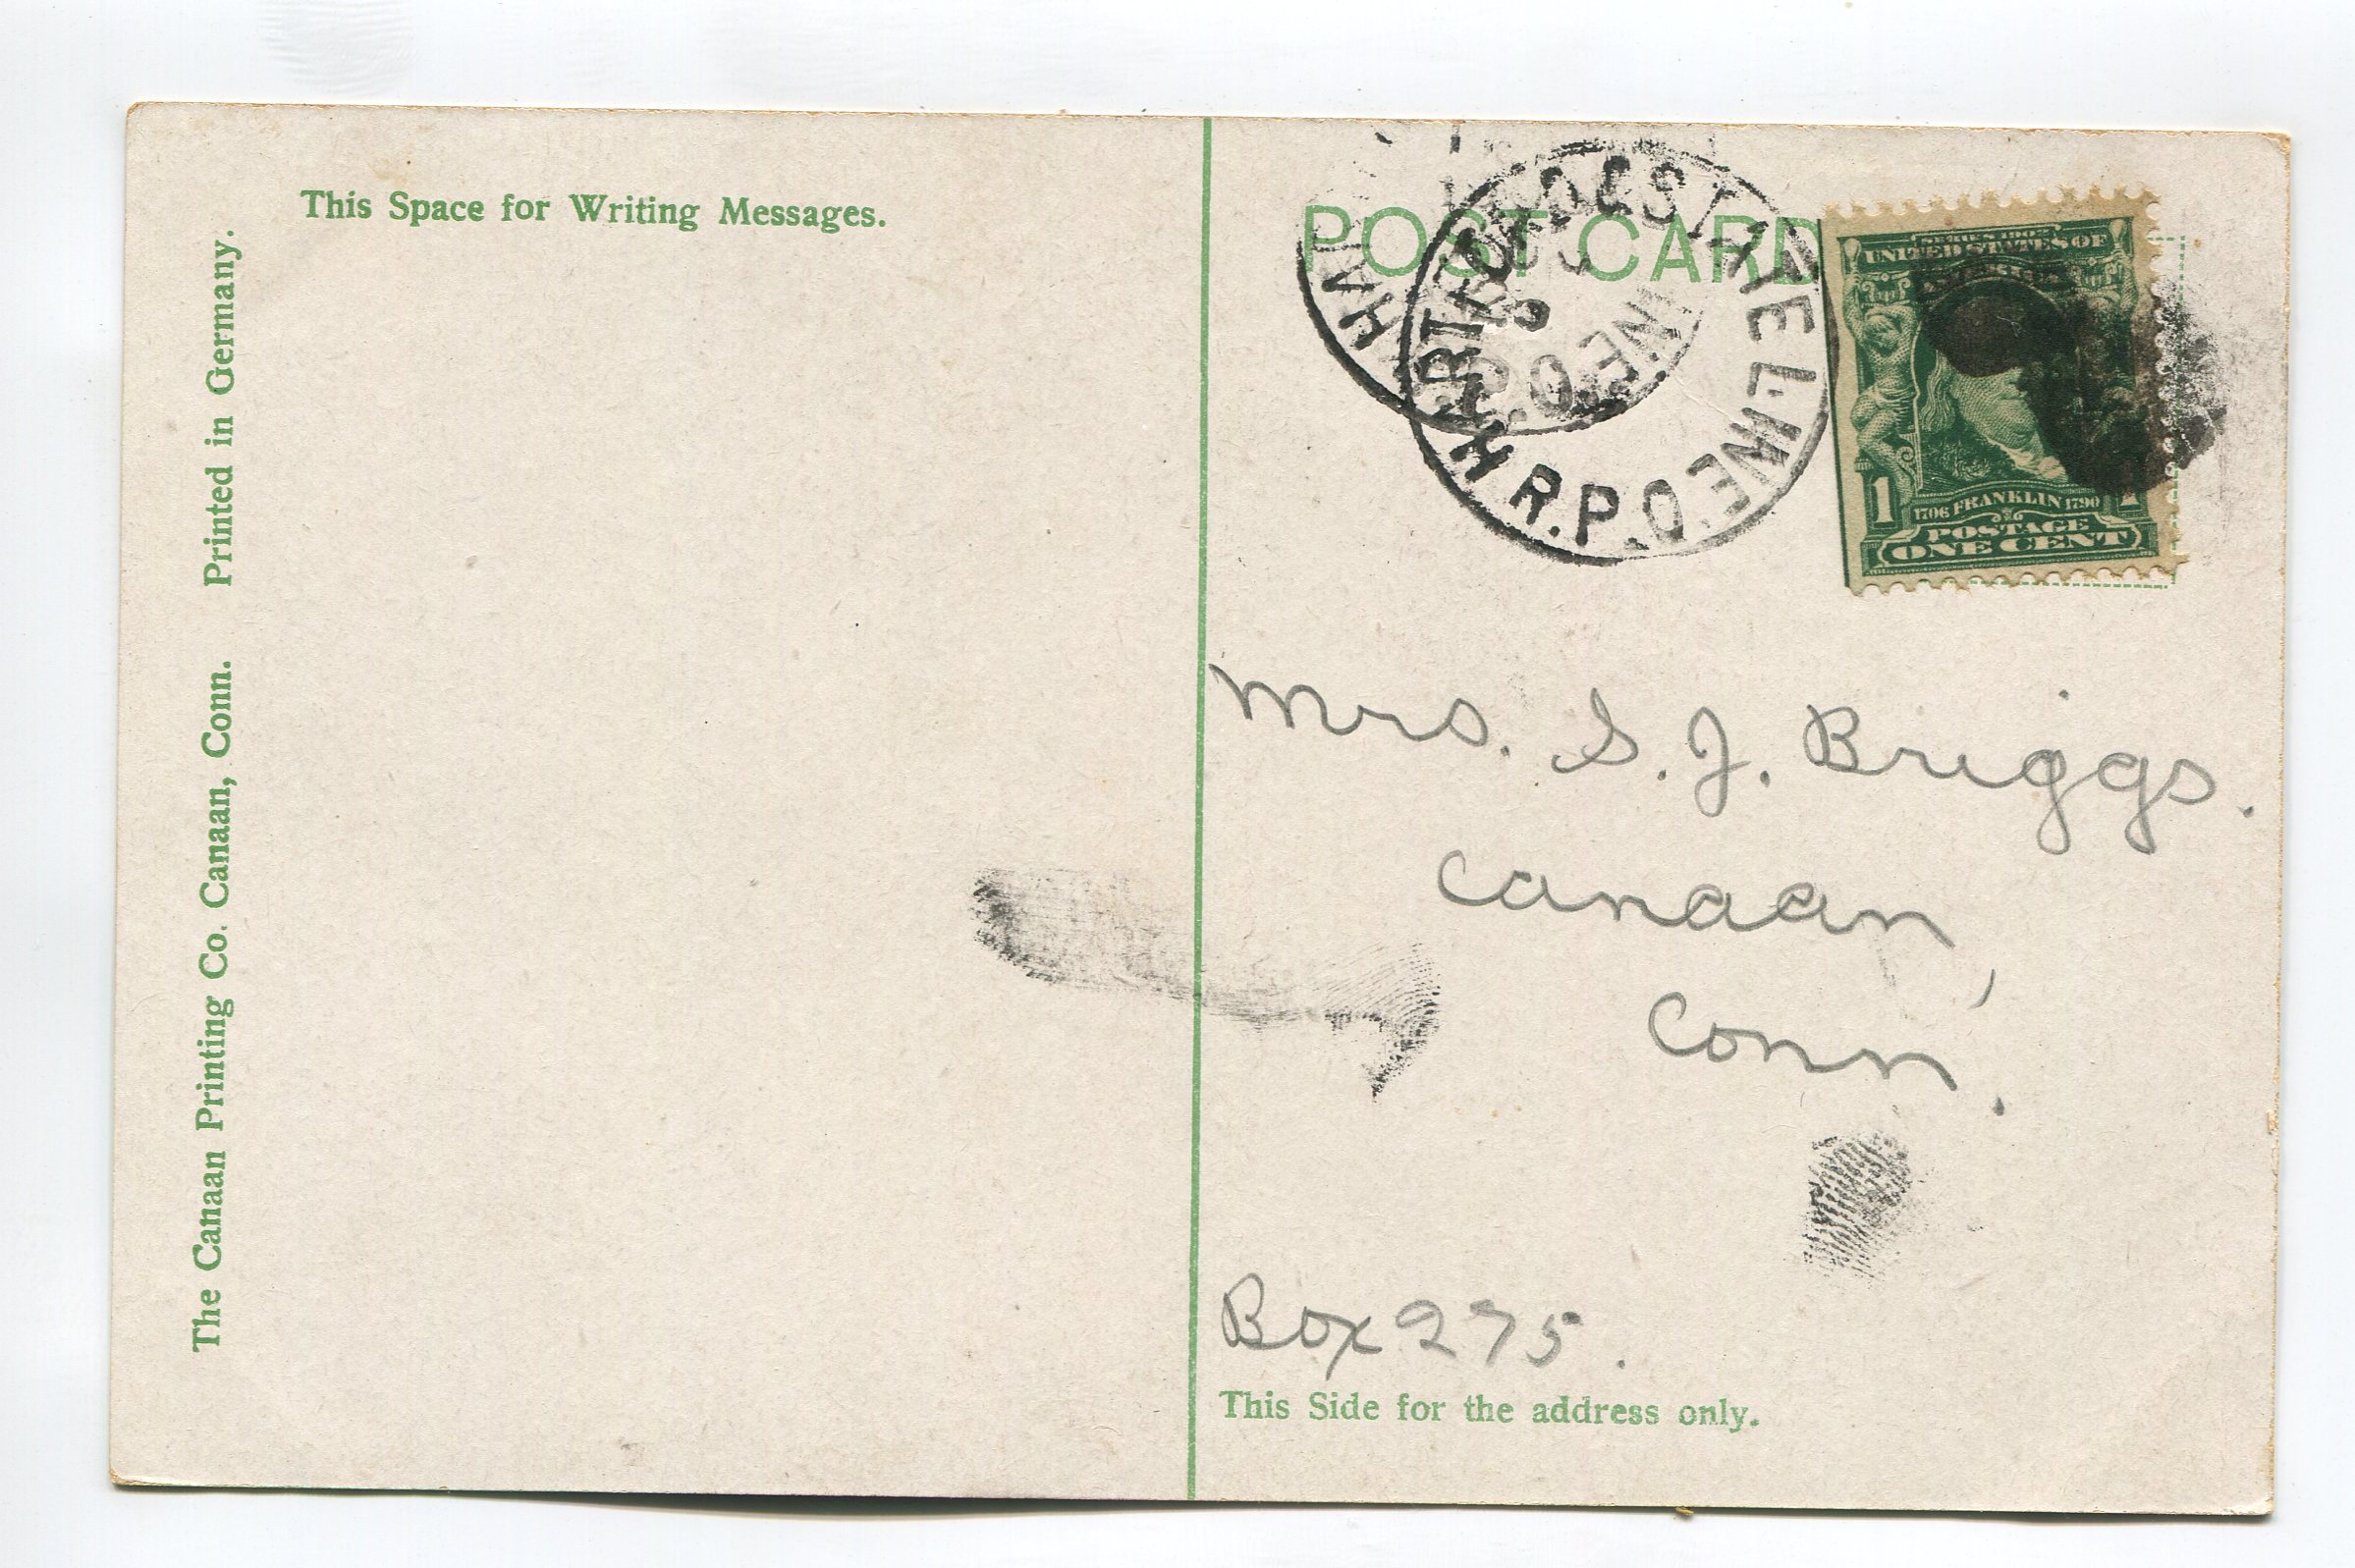 This Space for Writing Messages.
The Canaan Printing Co. Canaan, Conn. Printed in Germany.
POST CARD
HARTFORD & STATE LINE
R.P.O.
SERIES 1902
UNITED STATES OF
AMERICA
1 1
1706 FRANKLIN 1790
POSTAGE
ONE CENT
Mrs. S. J. Briggs.
Canaan,
Conn.
Box 275.
This Side for the address only.